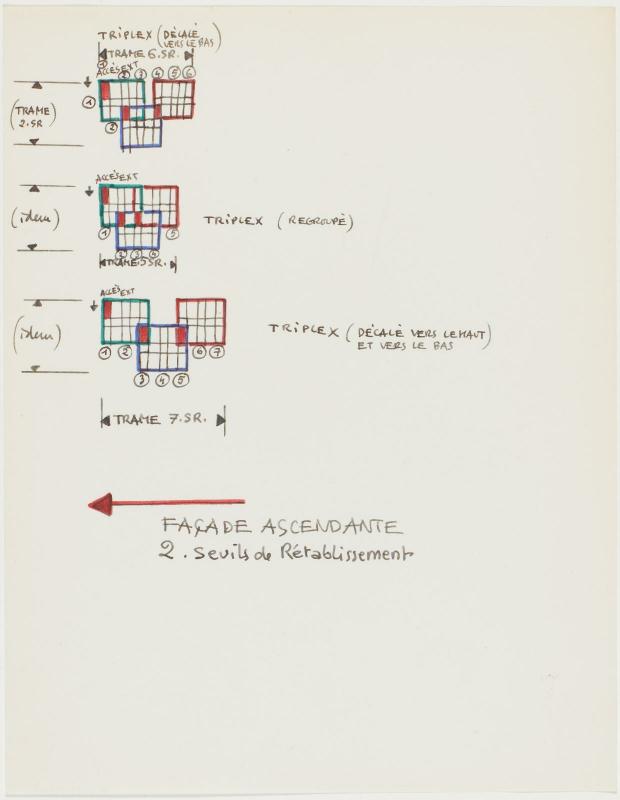 TRIPLEX (DÉCALÉ
VERS LE BAS)
TRAME 6.SR.
1
ACCÈS EXT
2 3 4 5 6
1
(TRAME)
2.SR
2
ACCÈS EXT
(idem)
TRIPLEX (REGROUPÉ)
1 5
2 3 4
TRAME 5SR.
ACCÈS EXT
(idem)
TRIPLEX (DÉCALÉ VERS LE HAUT
ET VERS LE BAS)
1 2 6 7
3 4 5
TRAME 7.SR.
FAÇADE ASCENDANTE
2. Seuils de Rétablissement